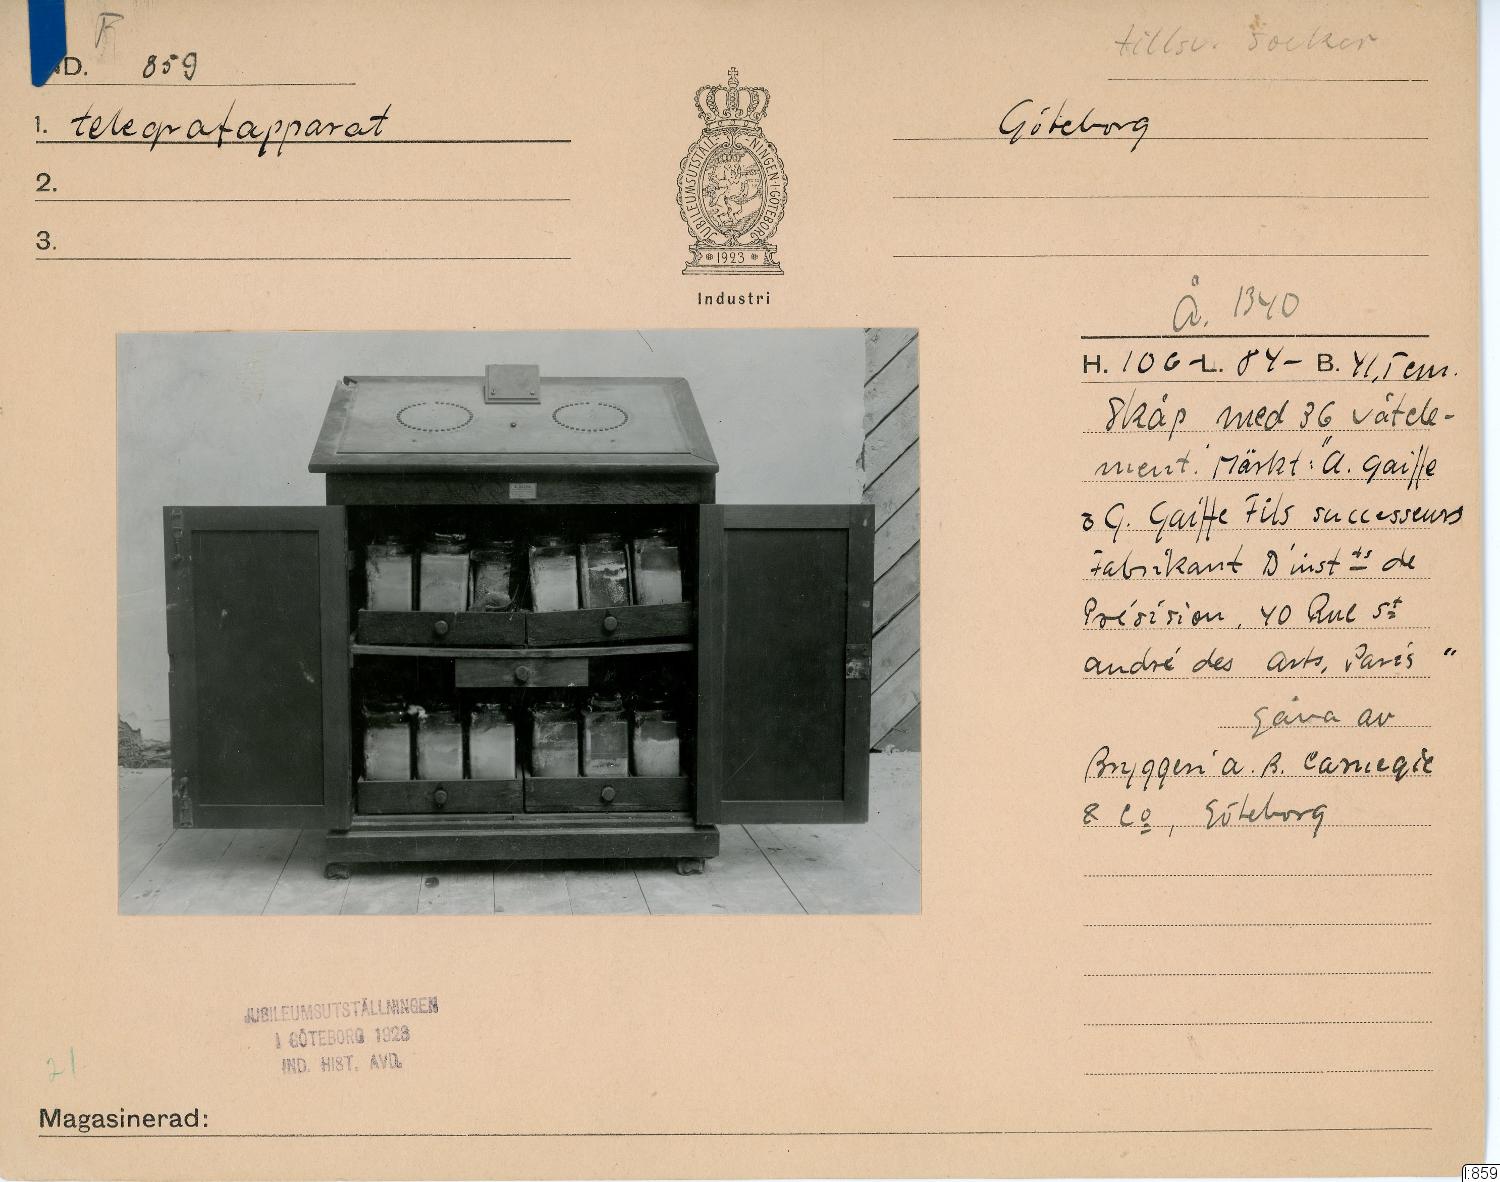 F
IND. 859
tillv. Socker
1. telegrafapparat
Göteborg
2.
3.
JUBILEUMSUTSTÄLLNINGEN I GÖTEBORG
1923
Industri
Å. 1340
H. 106 - L. 84 - B. 41,5 cm.
Skåp med 36 våtele-
ment. Märkt: "A. Gaiffe
& G. Gaiffe Fils successeurs
Fabrikant D'inst ts de
Présision, 40 Rue St
André des Arts, Paris"
Gåva av
Bryggeri A. B. Carnegie
& Co, Göteborg
JUBILEUMSUTSTÄLLNINGEN
I GÖTEBORG 1923
IND. HIST. AVD.
21
Magasinerad:
I:859